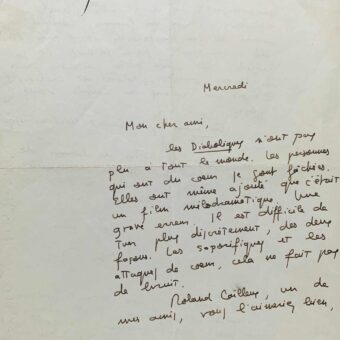 Mercredi
Mon cher ami,
les Diaboliques n'ont pas
plu à tout le monde. Les personnes
qui ont du coeur se sont fâchées.
Elles ont même ajouté que c'était
un film mélodramatique. Une
grave erreur. Il est difficile de
tuer plus discrètement, des deux
façons. Les soporifiques et les
attaques de coeur, cela ne fait pas
de bruit.
Roland Cailleux, un de
mes amis, vous l'aimeriez bien,